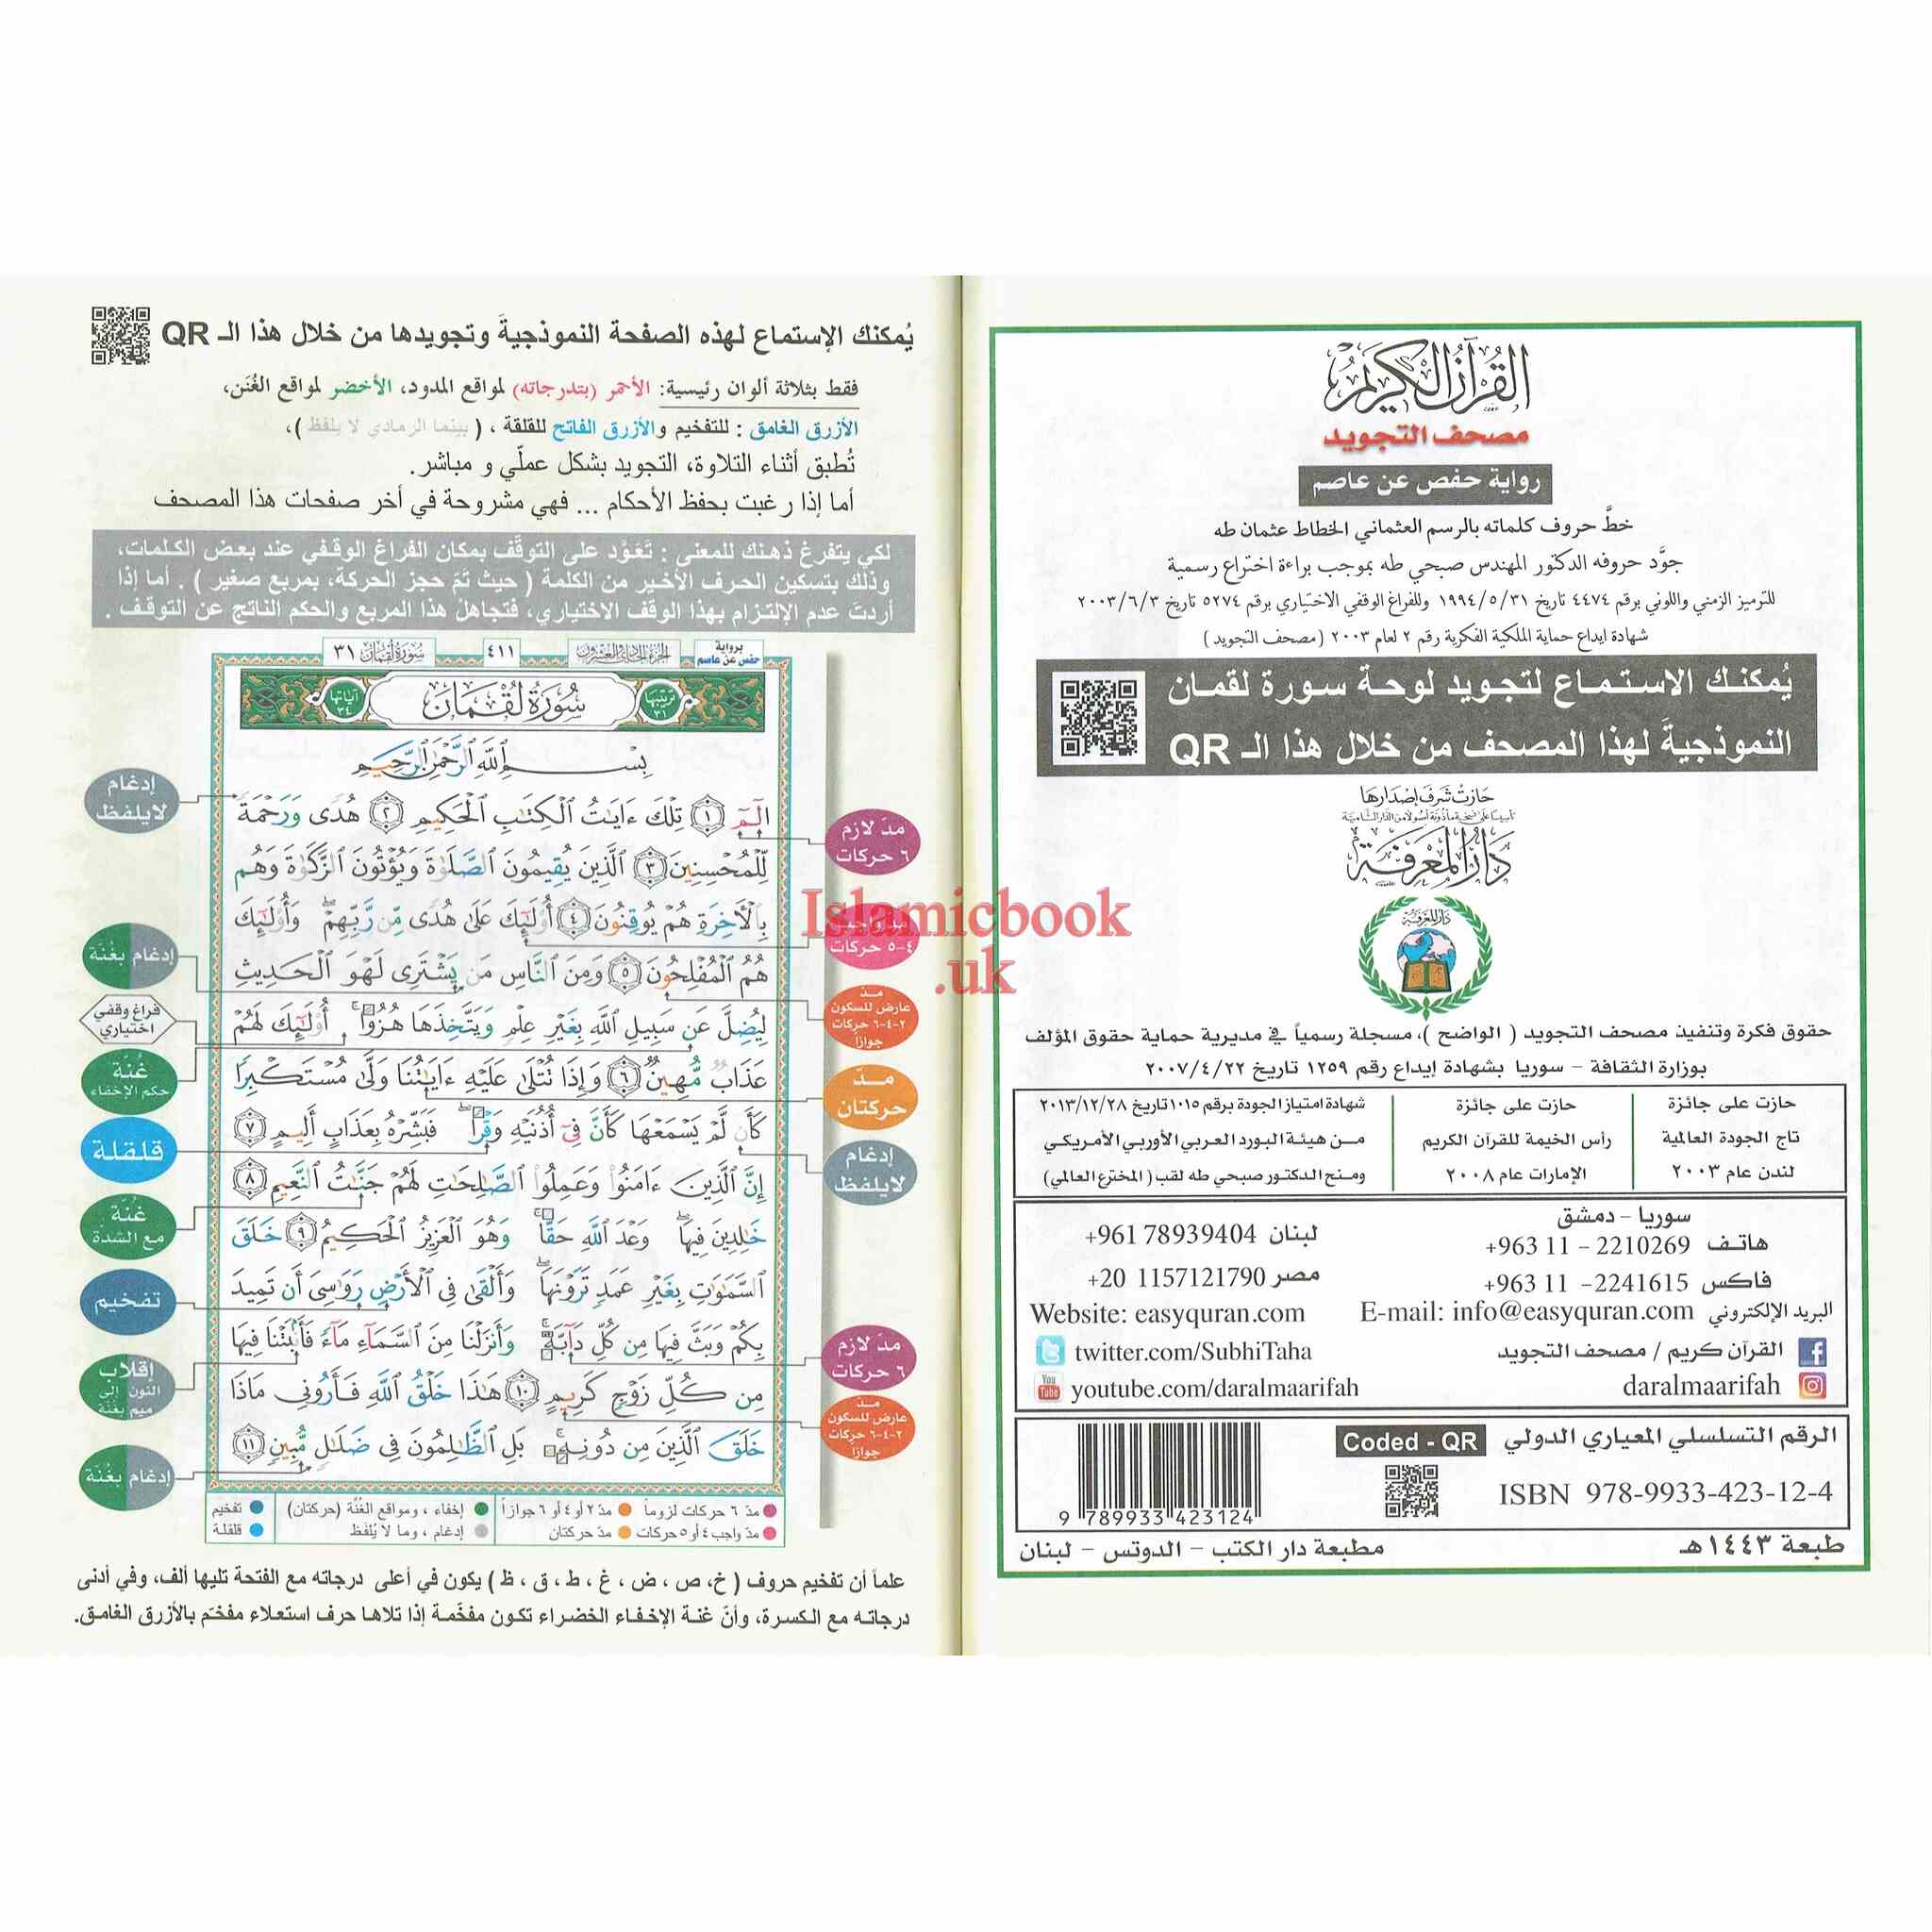 القرآن الكريم
مصحف التجويد
رواية حفص عن عاصم
خطَّ حروف كلماته بالرسم العثماني الخطاط عثمان طه
جوَّد حروفه الدكتور المهندس صبحي طه بموجب براءة اختراع رسمية
للترميز الزمني واللوني برقم ٤٤٧٤ تاريخ ١٩٩٤/٥/٣١ وللفراغ الوقفي الاختياري برقم ٥٢٧٤ تاريخ ٢٠٠٣/٦/٣
شهادة إيداع حماية الملكية الفكرية رقم ٢ لعام ٢٠٠٣ (مصحف التجويد)
يُمكنك الاستماع لتجويد لوحة سورة لقمان
النموذجيةَ لهذا المصحف من خلال هذا الـ QR
حازت شرف إصدارها
دار المعرفة
دار المعرفة
حقوق فكرة وتنفيذ مصحف التجويد ( الواضح )، مسجلة رسمياً في مديرية حماية حقوق المؤلف
بوزارة الثقافة - سوريا بشهادة إيداع رقم ١٢٥٩ تاريخ ٢٠٠٧/٤/٢٢
حازت على جائزة
تاج الجودة العالمية
لندن عام ٢٠٠٣
حازت على جائزة
رأس الخيمة للقرآن الكريم
الإمارات عام ٢٠٠٨
شهادة امتياز الجودة برقم ١٠١٥ تاريخ ٢٠١٣/١٢/٢٨
من هيئة البورد العربي الأوربي الأمريكي
ومنح الدكتور صبحي طه لقب ( المخترع العالمي)
سوريا - دمشق
هاتف +963 11 - 2210269
فاكس +963 11 -2241615
لبنان +961 78939404
مصر +20 1157121790
البريد الإلكتروني E-mail: info@easyquran.com
Website: easyquran.com
القرآن كريم / مصحف التجويد
twitter.com/SubhiTaha
daralmaarifah
youtube.com/daralmaarifah
الرقم التسلسلي المعياري الدولي Coded - QR
ISBN 978-9933-423-12-4
9 789933 423124
طبعة ١٤٤٣هـ
مطبعة دار الكتب - الدوتس - لبنان
يُمكنك الإستماع لهذه الصفحة النموذجيةَ وتجويدها من خلال هذا الـ QR
فقط بثلاثة ألوان رئيسية: الأحمر (بتدرجاته) لمواقع المدود، الأخضر لمواقع الغُنَن،
الأزرق الغامق : للتفخيم والأزرق الفاتح للقلقة ، ( بينما الرمادي لا يلفظ )،
تُطبق أثناء التلاوة، التجويد بشكل عملّي و مباشر.
أما إذا رغبت بحفظ الأحكام ... فهي مشروحة في أخر صفحات هذا المصحف
لكي يتفرغ ذهنك للمعنى : تَعَوَّد على التوقّف بمكان الفراغ الوقفي عند بعض الكلمات،
وذلك بتسكين الحرف الأخير من الكلمة ( حيث تمّ حجز الحركة، بمربع صغير ) . أما إذا
أردتَ عدم الإلتزام بهذا الوقف الاختياري، فتجاهل هذا المربع والحكم الناتج عن التوقف .
برواية حفص عن عاصم
الجزء الحادي والعشرون
٤١١
سورة لقمان ٣١
ترتيبها ٣١
سُورَةُ لُقْمَان
آياتها ٣٤
بِسْمِ ٱللَّهِ ٱلرَّحْمَٰنِ ٱلرَّحِيمِ
الٓمٓ ١ تِلْكَ ءَايَٰتُ ٱلْكِتَٰبِ ٱلْحَكِيمِ ٢ هُدًى وَرَحْمَةً
لِّلْمُحْسِنِينَ ٣ ٱلَّذِينَ يُقِيمُونَ ٱلصَّلَوٰةَ وَيُؤْتُونَ ٱلزَّكَوٰةَ وَهُم
بِٱلْءَاخِرَةِ هُمْ يُوقِنُونَ ٤ أُو۟لَٰٓئِكَ عَلَىٰ هُدًى مِّن رَّبِّهِمْ ۖ وَأُو۟لَٰٓئِكَ
هُمُ ٱلْمُفْلِحُونَ ٥ وَمِنَ ٱلنَّاسِ مَن يَشْتَرِى لَهْوَ ٱلْحَدِيثِ
لِيُضِلَّ عَن سَبِيلِ ٱللَّهِ بِغَيْرِ عِلْمٍ وَيَتَّخِذَهَا هُزُوًا ۚ أُو۟لَٰٓئِكَ لَهُمْ
عَذَابٌ مُّهِينٌ ٦ وَإِذَا تُتْلَىٰ عَلَيْهِ ءَايَٰتُنَا وَلَّىٰ مُسْتَكْبِرًا
كَأَن لَّمْ يَسْمَعْهَا كَأَنَّ فِىٓ أُذُنَيْهِ وَقْرًا ۖ فَبَشِّرْهُ بِعَذَابٍ أَلِيمٍ ٧
إِنَّ ٱلَّذِينَ ءَامَنُوا۟ وَعَمِلُوا۟ ٱلصَّٰلِحَٰتِ لَهُمْ جَنَّٰتُ ٱلنَّعِيمِ ٨
خَٰلِدِينَ فِيهَا ۖ وَعْدَ ٱللَّهِ حَقًّا ۚ وَهُوَ ٱلْعَزِيزُ ٱلْحَكِيمُ ٩ خَلَقَ
ٱلسَّمَٰوَٰتِ بِغَيْرِ عَمَدٍ تَرَوْنَهَا ۖ وَأَلْقَىٰ فِى ٱلْأَرْضِ رَوَٰسِىَ أَن تَمِيدَ
بِكُمْ وَبَثَّ فِيهَا مِن كُلِّ دَآبَّةٍ ۚ وَأَنزَلْنَا مِنَ ٱلسَّمَآءِ مَآءً فَأَنۢبَتْنَا فِيهَا
مِن كُلِّ زَوْجٍ كَرِيمٍ ١٠ هَٰذَا خَلْقُ ٱللَّهِ فَأَرُونِى مَاذَا
خَلَقَ ٱلَّذِينَ مِن دُونِهِۦ ۚ بَلِ ٱلظَّٰلِمُونَ فِى ضَلَٰلٍ مُّبِينٍ ١١
مدّ لازم
٦ حركات
مدّ واجب
٤-٥ حركات
مدّ
عارض للسكون
٢-٤-٦ حركات
جوازاً
مدّ
حركتان
إدغام
لايلفظ
مدّ لازم
٦ حركات
مدّ
عارض للسكون
٢-٤-٦ حركات
جوازاً
إدغام
لايلفظ
إدغام بغُنّة
فراغ وقفي
اختياري
غُنّة
حكم الإخفاء
قلقلة
غُنّة
مع الشدّة
تفخيم
إقلاب
النون إلى
ميم بغُنّة
إدغام بغُنّة
مدّ ٦ حركات لزوماً مدّ ٢ أو ٤ أو ٦ جوازاً إخفاء ، ومواقع الغُنّة (حركتان) تفخيم
مدّ واجب ٤ أو ٥ حركات مدّ حركتان إدغام ، وما لا يُلفَظ قلقلة
علماً أن تفخيم حروف ( خ، ص ، ض ، غ ، ط ، ق ، ظ ) يكون في أعلى درجاته مع الفتحة تليها ألف، وفي أدنى
درجاته مع الكسرة، وأنّ غنة الإخفاء الخضراء تكون مفخّمة إذا تلاها حرف استعلاء مفخّم بالأزرق الغامق.
Islamicbook
.uk